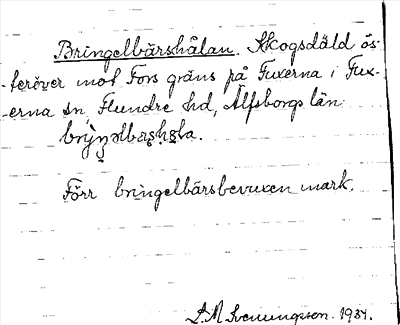 Bringelbärshålan. Skogsdäld ös-
teröver mot Fors gräns på Fuxerna i Fux-
erna sn, Flundre hd, Älfsborgs län
Förr bringelbärsbevuxen mark.
S.M Svenningsson. 1934.